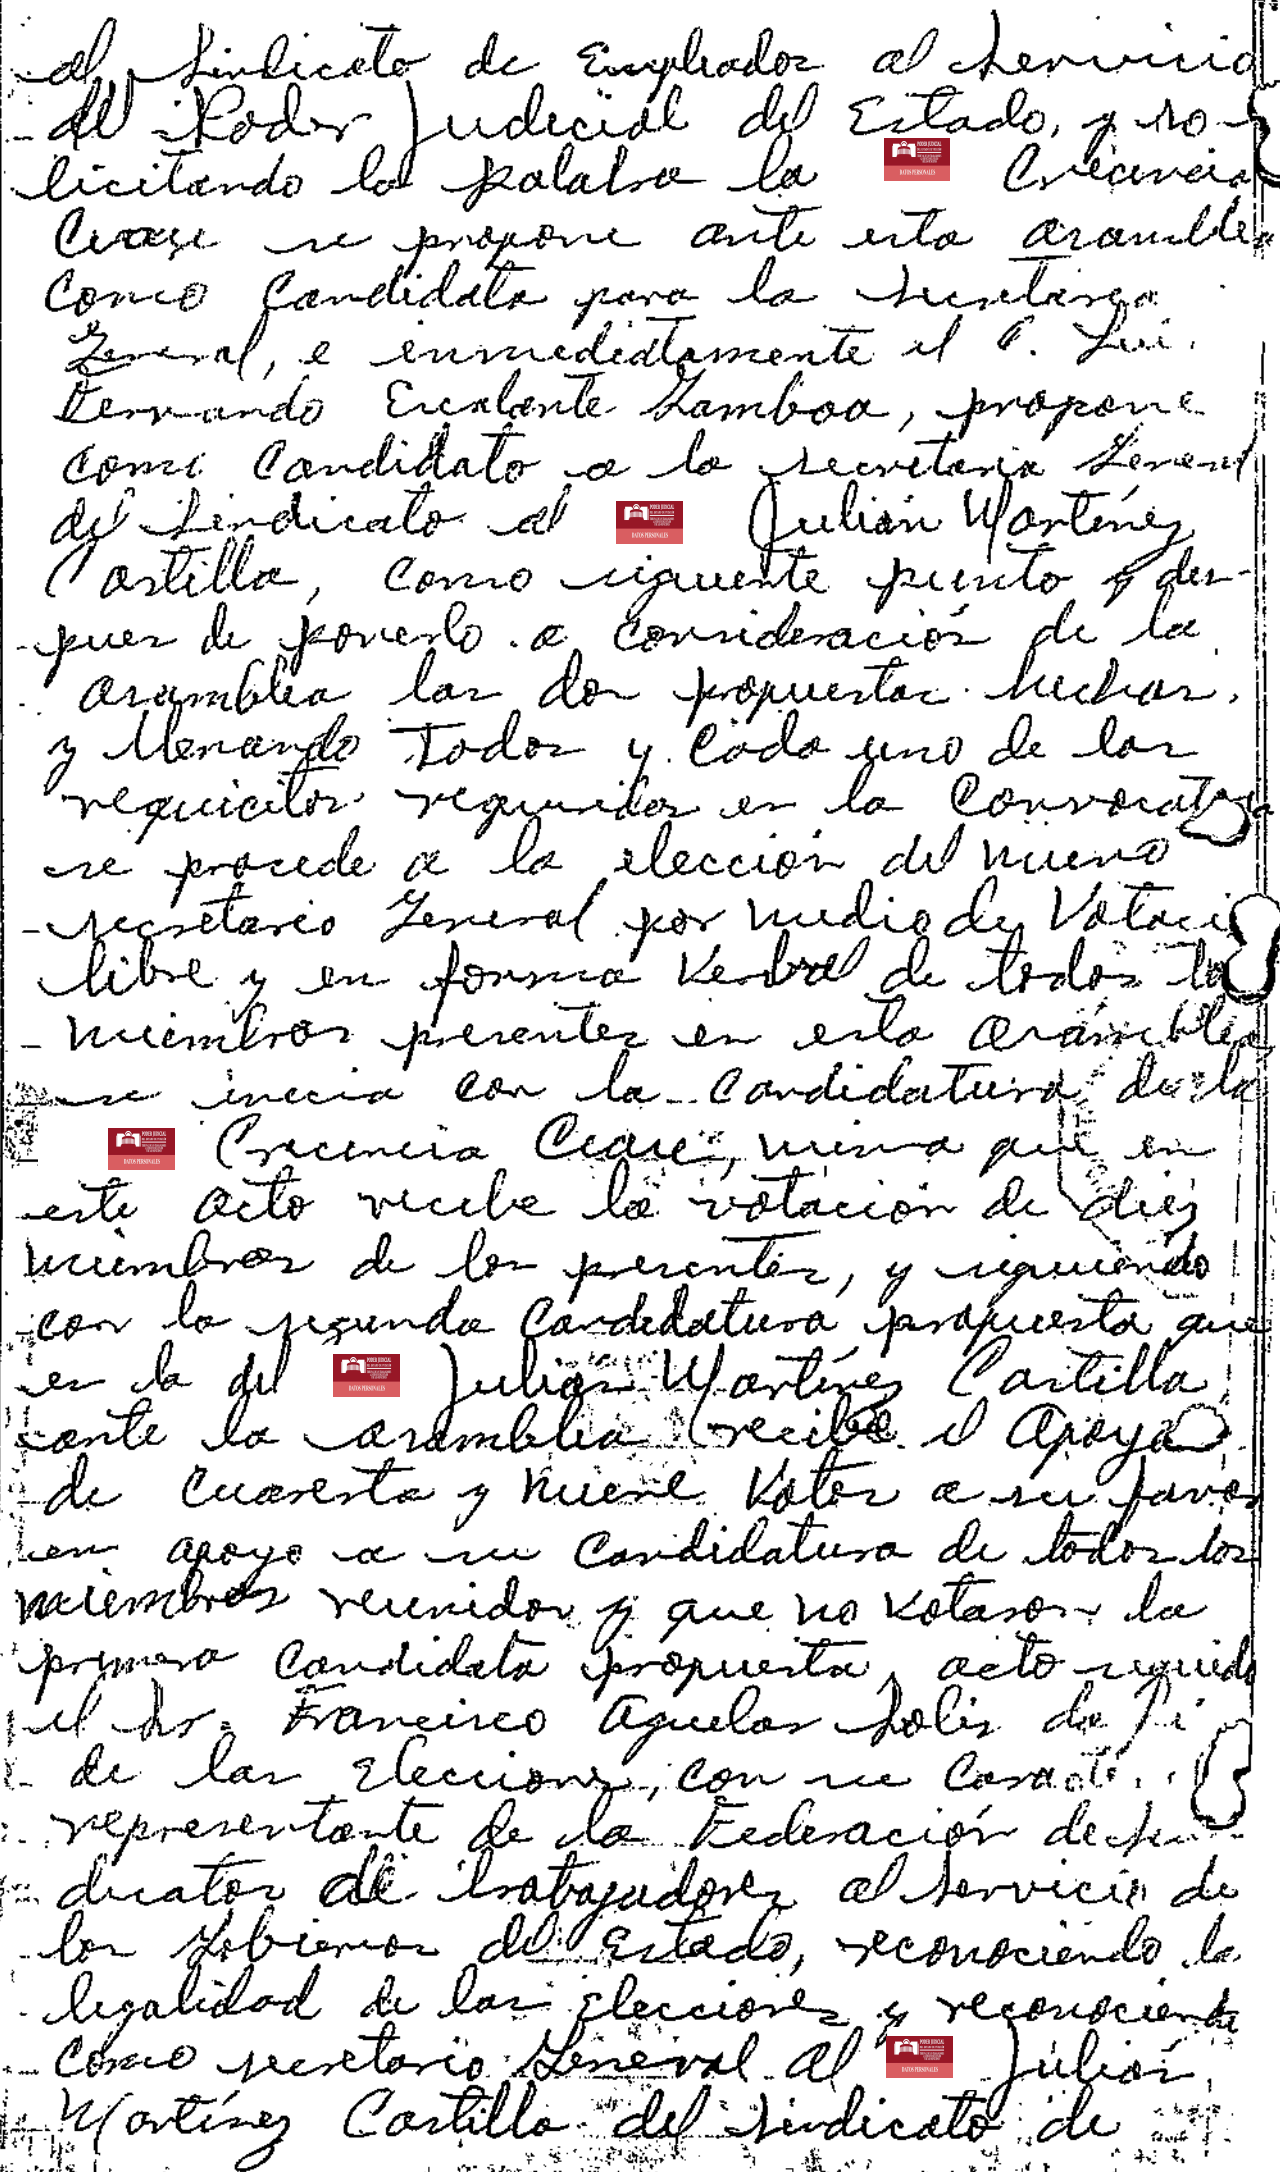 al Sindicato de Empleados al Servicio
del Poder Judicial del Estado, y so-
licitando la palabra la PODER JUDICIAL DATOS PERSONALES Crecencia
Ceace se propone ante esta asamblea
como Candidata para la Secretaria
General, e inmediatamente el C. Luis
Fernando Escalante Gamboa, propone
como Candidato a la secretaria General
del Sindicato al PODER JUDICIAL DATOS PERSONALES Julián Martínez
Castilla, como siguente punto y des-
pues de ponerlo a consideración de la
asamblea las dos propuestas hechas.
y llenando todos y cada uno de los
requicitos requeridos en la Convocatoria
se procede a la elección del nuevo
secretario General por medio de Votaci
libre y en forma Verbal de todos lo
miembros presentes en esta asamblea
se inicia con la Candidatura de la
PODER JUDICIAL DATOS PERSONALES Crecencia Ceace, misma que en
este acto recibe la votación de diez
miembros de los presentes, y siguiendo
con la segunda Candidatura propuesta que
es la del PODER JUDICIAL DATOS PERSONALES Julián Martínez Castilla
ante la asamblea recibe el Apoyo
de Cuarenta y Nueve Votos a su favor
en apoyo a su Candidatura de todos los
miembros reunidos y que no Votaron la
primera Candidata propuesta, acto seguido
el Sr. Francisco Aguilar Solis da
de las Elecciones, con su
representante de la Federación de Sin-
dicatos de trabajadores al servicio de
los Gobiernos del Estado, reconociendo la
legalidad de las Elecciones y reconociendo
como secretario General al PODER JUDICIAL DATOS PERSONALES Julián
Martínez Castilla del Sindicato de